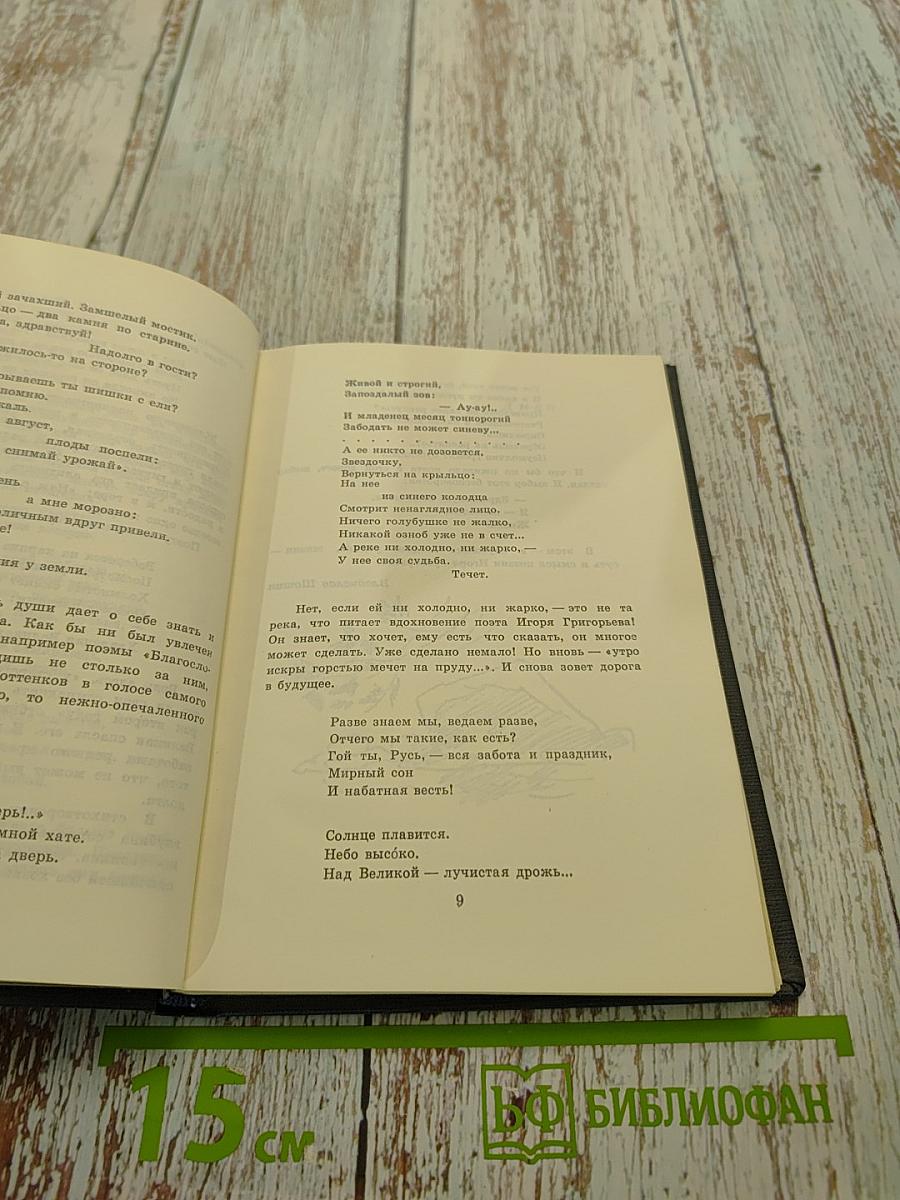 зачахший. Замшелый мостик.
— два камня по старине.
здравствуй!
Надолго в гости?
на стороне?
ты шишки с ели?
август,
плоды поспели:
снимай урожай».
а мне морозно:
вдруг привели.
у земли.
души дает о себе знать и
Как бы ни был увлечен
например поэмы «Благосло-
не столько за ним,
оттенков в голосе самого
то нежно-опечаленного
хате.
дверь.
Живой и строгий,
Запоздалый зов:
— Ау-ау!..
И младенец месяц тонкорогий
Забодать не может синеву...
. . . . . . . . . . . . .
А ее никто не дозовется,
Звездочку,
Вернуться на крыльцо:
На нее
из синего колодца
Смотрит ненаглядное лицо.
Ничего голубушке не жалко,
Никакой озноб уже не в счет...
А реке ни холодно, ни жарко, —
У нее своя судьба.
Течет.
Нет, если ей ни холодно, ни жарко, — это не та
река, что питает вдохновение поэта Игоря Григорьева!
Он знает, что хочет, ему есть что сказать, он многое
может сделать. Уже сделано немало! Но вновь — «утро
искры горстью мечет на пруду...». И снова зовет дорога
в будущее.
Разве знаем мы, ведаем разве,
Отчего мы такие, как есть?
Гой ты, Русь, — вся забота и праздник,
Мирный сон
И набатная весть!
Солнце плавится.
Небо высо́ко.
Над Великой — лучистая дрожь...
9
15 см
БФ БИБЛИОФАН